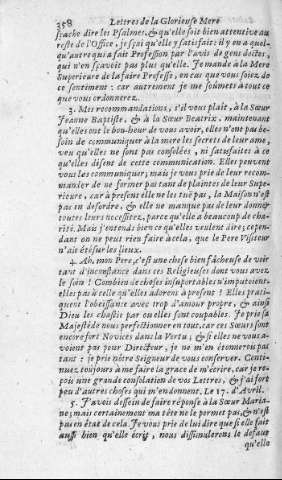 358 Lettres de la Glorieuse Mere
sçache dire les Psalmes, & qu'elle soit bien attentive au
reste de l'Office, je sçai qu'elle y satisfait: il y en a quel-
qu'autre qui a fait Profession par l'avis de gens doctes,
qui n'en sçavoit pas plus qu'elle. Je mande à la Mere
Superieure de la faire Professe, en cas que vous soiez de
ce sentiment: car autrement je me soumets à tout ce
que vous ordonnerez.
3. Mes recommandations, s'il vous plait, à la Sœur
Jeanne Baptiste, & à la Sœur Beatrix, maintenant
qu'elles ont le bon-heur de vous avoir, elles n'ont pas be-
soin de communiquer à la mere les secrets de leur ame,
veu qu'elles ne sont pas consolées, ni satisfaites à ce
qu'elles disent de cette communication. Elles peuvent
vous les communiquer; mais je veus de leur recom-
mander de ne former pas tant de plaintes de leur Supe-
rieure, car à present elle ne les tuë pas, la Maison n'est
pas en desordre, & elle ne manque pas de leur donner
toutes leurs necessitez, parce qu'elle a beaucoup de cha-
rité. Mais j'entends bien ce qu'elles veulent dire; cepen-
dant on ne peut rien faire à cela, que le Pere Visiteur
n'ait étudié les lieux.
4. Ah, mon Pere, c'est une chose bien fâcheuse de voir
tant d'inconstance dans ces Religieuses dont vous avez
le soin! Combien de choses insuportables n'imputoient-
elles pas à celle qu'elles adorent à present! Elles prati-
quent l'obeissance avec trop d'amour propre, & ainsi
Dieu les chastie par où elles sont coupables. Je prie sa
Majesté de nous perfectionner en tout, car ces Sœurs sont
encore fort Novices dans la Vertu, & si elles ne vous a-
voient pas pour Directeur, je ne m'en étonnerois pas
tant: je prie nôtre Seigneur de vous conserver. Conti-
nuez toujours à me faire la grace de m'écrire, car je re-
çois une grande consolation de vos Lettres, & j'ai fort
peu d'autres choses qui m'en donnent. Le 17. d'Avril.
5. J'avois dessein de faire réponse à la Sœur Maria-
ne; mais certainement ma tête ne le permet pas, & n'est
pas en état de cela. Je vous prie de lui dire que si elle fait
aussi bien qu'elle écrit, nous dissimulerons le défaut
qu'elle